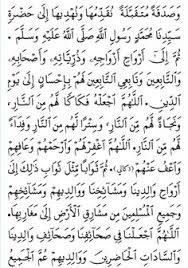 وَصَدَقَةً مُتَقَبَّلَةً نُقَدِّمُهَا وَنُهْدِيهَا إِلَى حَضْرَةِ
سَيِّدِنَا مُحَمَّدٍ رَسُولِ اللهِ صَلَّى اللهُ عَلَيْهِ وَسَلَّمَ .
ثُمَّ إِلَى أَرْوَاحِ أَزْوَاجِهِ، وَذُرِّيَّاتِهِ، وَأَصْحَابِهِ،
وَالتَّابِعِينَ وَتَابِعِي التَّابِعِينَ لَهُمْ بِإِحْسَانٍ إِلَى يَوْمِ
الدِّينِ. اللَّهُمَّ اجْعَلْهُ فَكَاكًا لَهُمْ مِنَ النَّارِ،
وَنَجَاةً لَهُمْ مِنَ النَّارِ، وَسِتْرًا لَهُمْ مِنَ النَّارِ، وَفِدَاءً
لَهُمْ مِنَ النَّارِ. اللَّهُمَّ اغْفِرْ لَهُمْ وَارْحَمْهُمْ وَعَافِهِمْ
وَاعْفُ عَنْهُمْ ثُمَّ ثَوَابًا مِثْلَ ثَوَابِ ذَلِكَ إِلَى
أَرْوَاحِ وَالِدِينَا وَمَشَائِخِنَا وَوَالِدِيهِمْ وَمَشَائِخِهِمْ
وَجَمِيعِ الْمُسْلِمِينَ مِنْ مَشَارِقِ الْأَرْضِ إِلَى مَغَارِبِهَا.
اللَّهُمَّ اجْعَلْنَا فِي صَحَائِفِنَا وَصَحَائِفِ وَالِدِينَا
وَالسَّادَاتِ الْحَاضِرِينَ وَوَالِدِيهِمْ عَمَّ الْجَمِيعَ